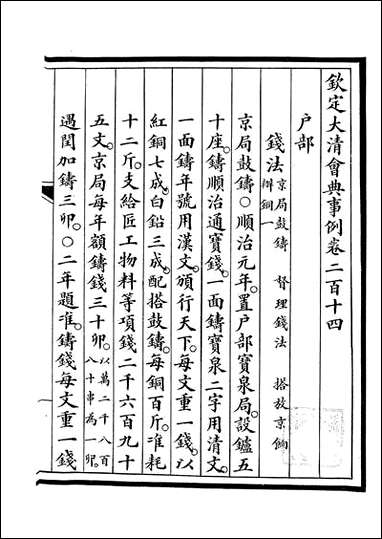 欽定大清會典事例卷二百十四
戶部
錢法 京局鼓鑄 督理錢法 搭放京餉
辦銅一
京局鼓鑄○順治元年。置戶部寶泉局。設鑪五
十座。鑄順治通寶錢。一面鑄寶泉二字用清文。
一面鑄年號用漢文。頒行天下。每文重一錢。以
紅銅七成。白鉛三成。配搭鼓鑄。每銅百斤。准耗
十二斤。支給匠工物料等項錢二千六百九十
五文。京局每年額鑄錢三十卯。以萬二千八百
八十串為一卯。
遇閏加鑄三卯。○二年題准。鑄錢每文重一錢